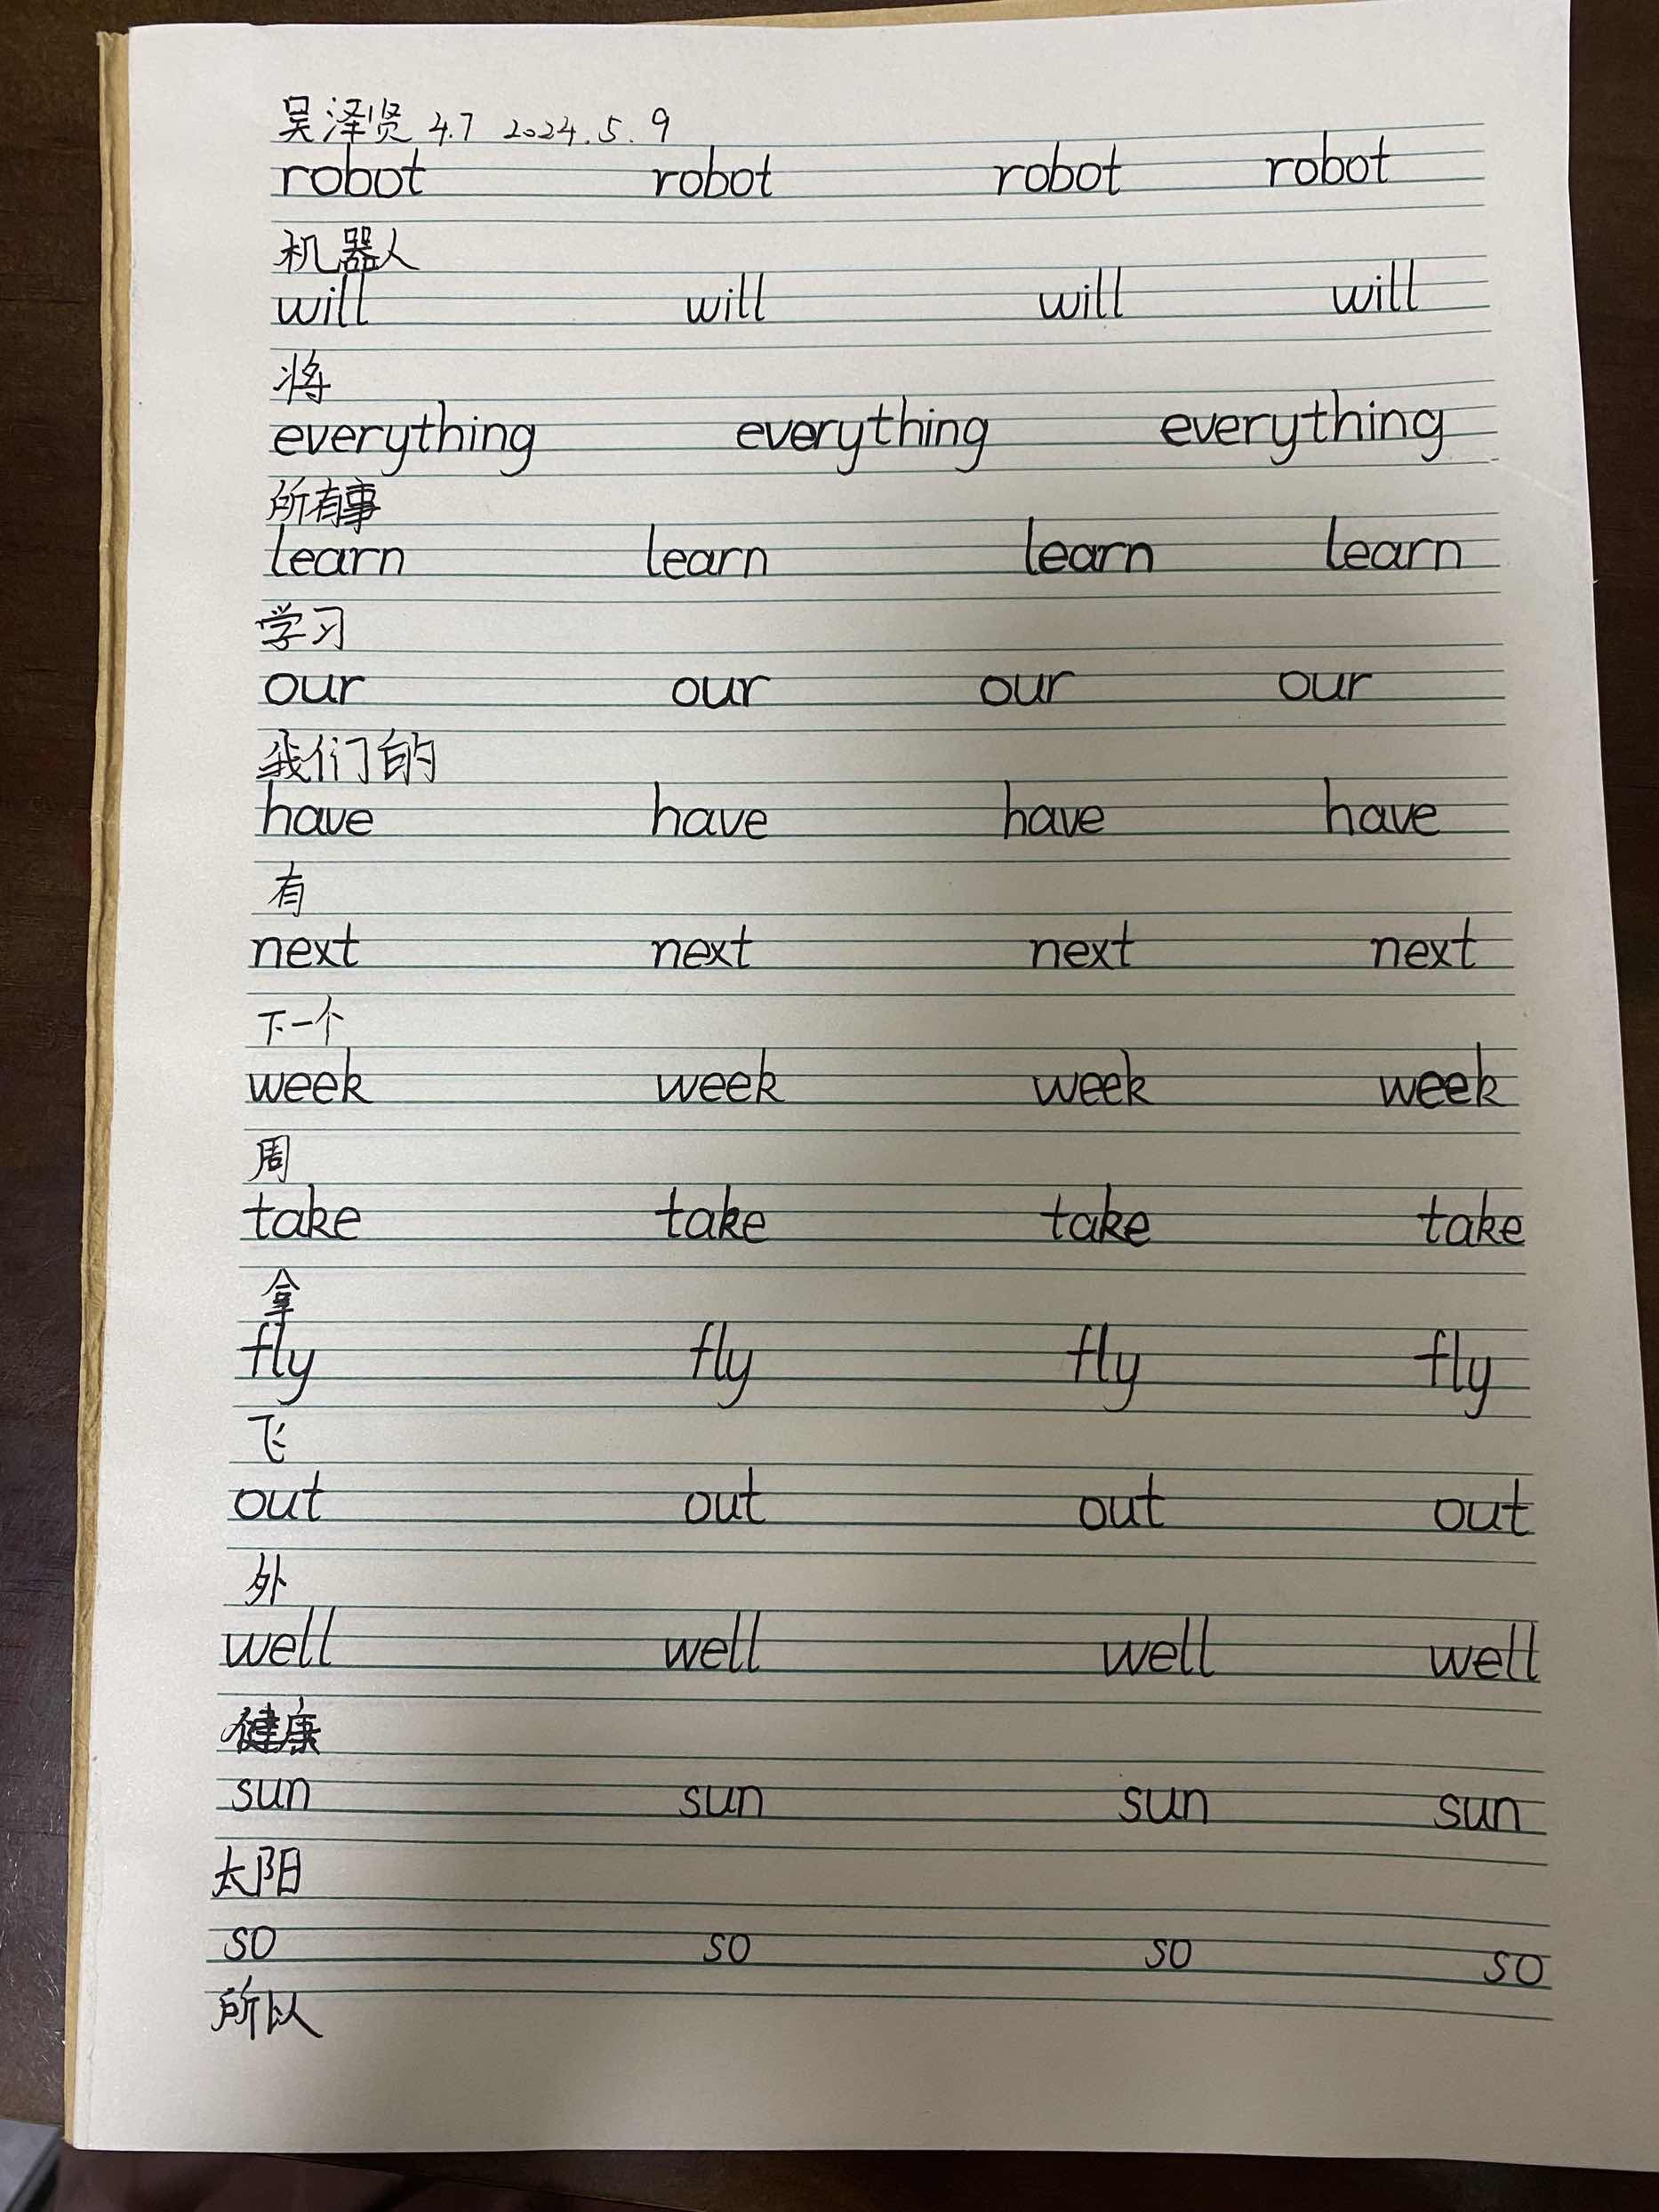 吴泽贤 4.7 2024.5.9
robot robot robot robot
机器人
will will will will
将
everything everything everything
所有事
learn learn learn learn
学习
our our our our
我们的
have have have have
有
next next next next
下一个
week week week week
周
take take take take
拿
fly fly fly fly
飞
out out out out
外
well well well well
健康
sun sun sun sun
太阳
so so so so
所以